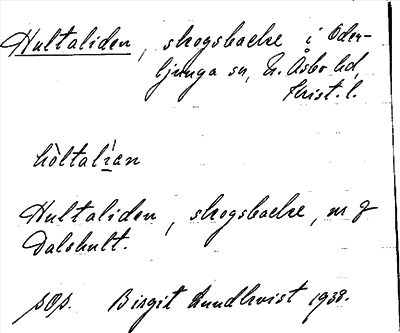 Hultaliden, skogsbacke i Öden-
ljunga sn, N. Åsbo hd,
Krist. l.
hòltalían
Hultaliden, skogsbacke, m g
Dalshult.
pop. Birgit Lundkvist 1938.